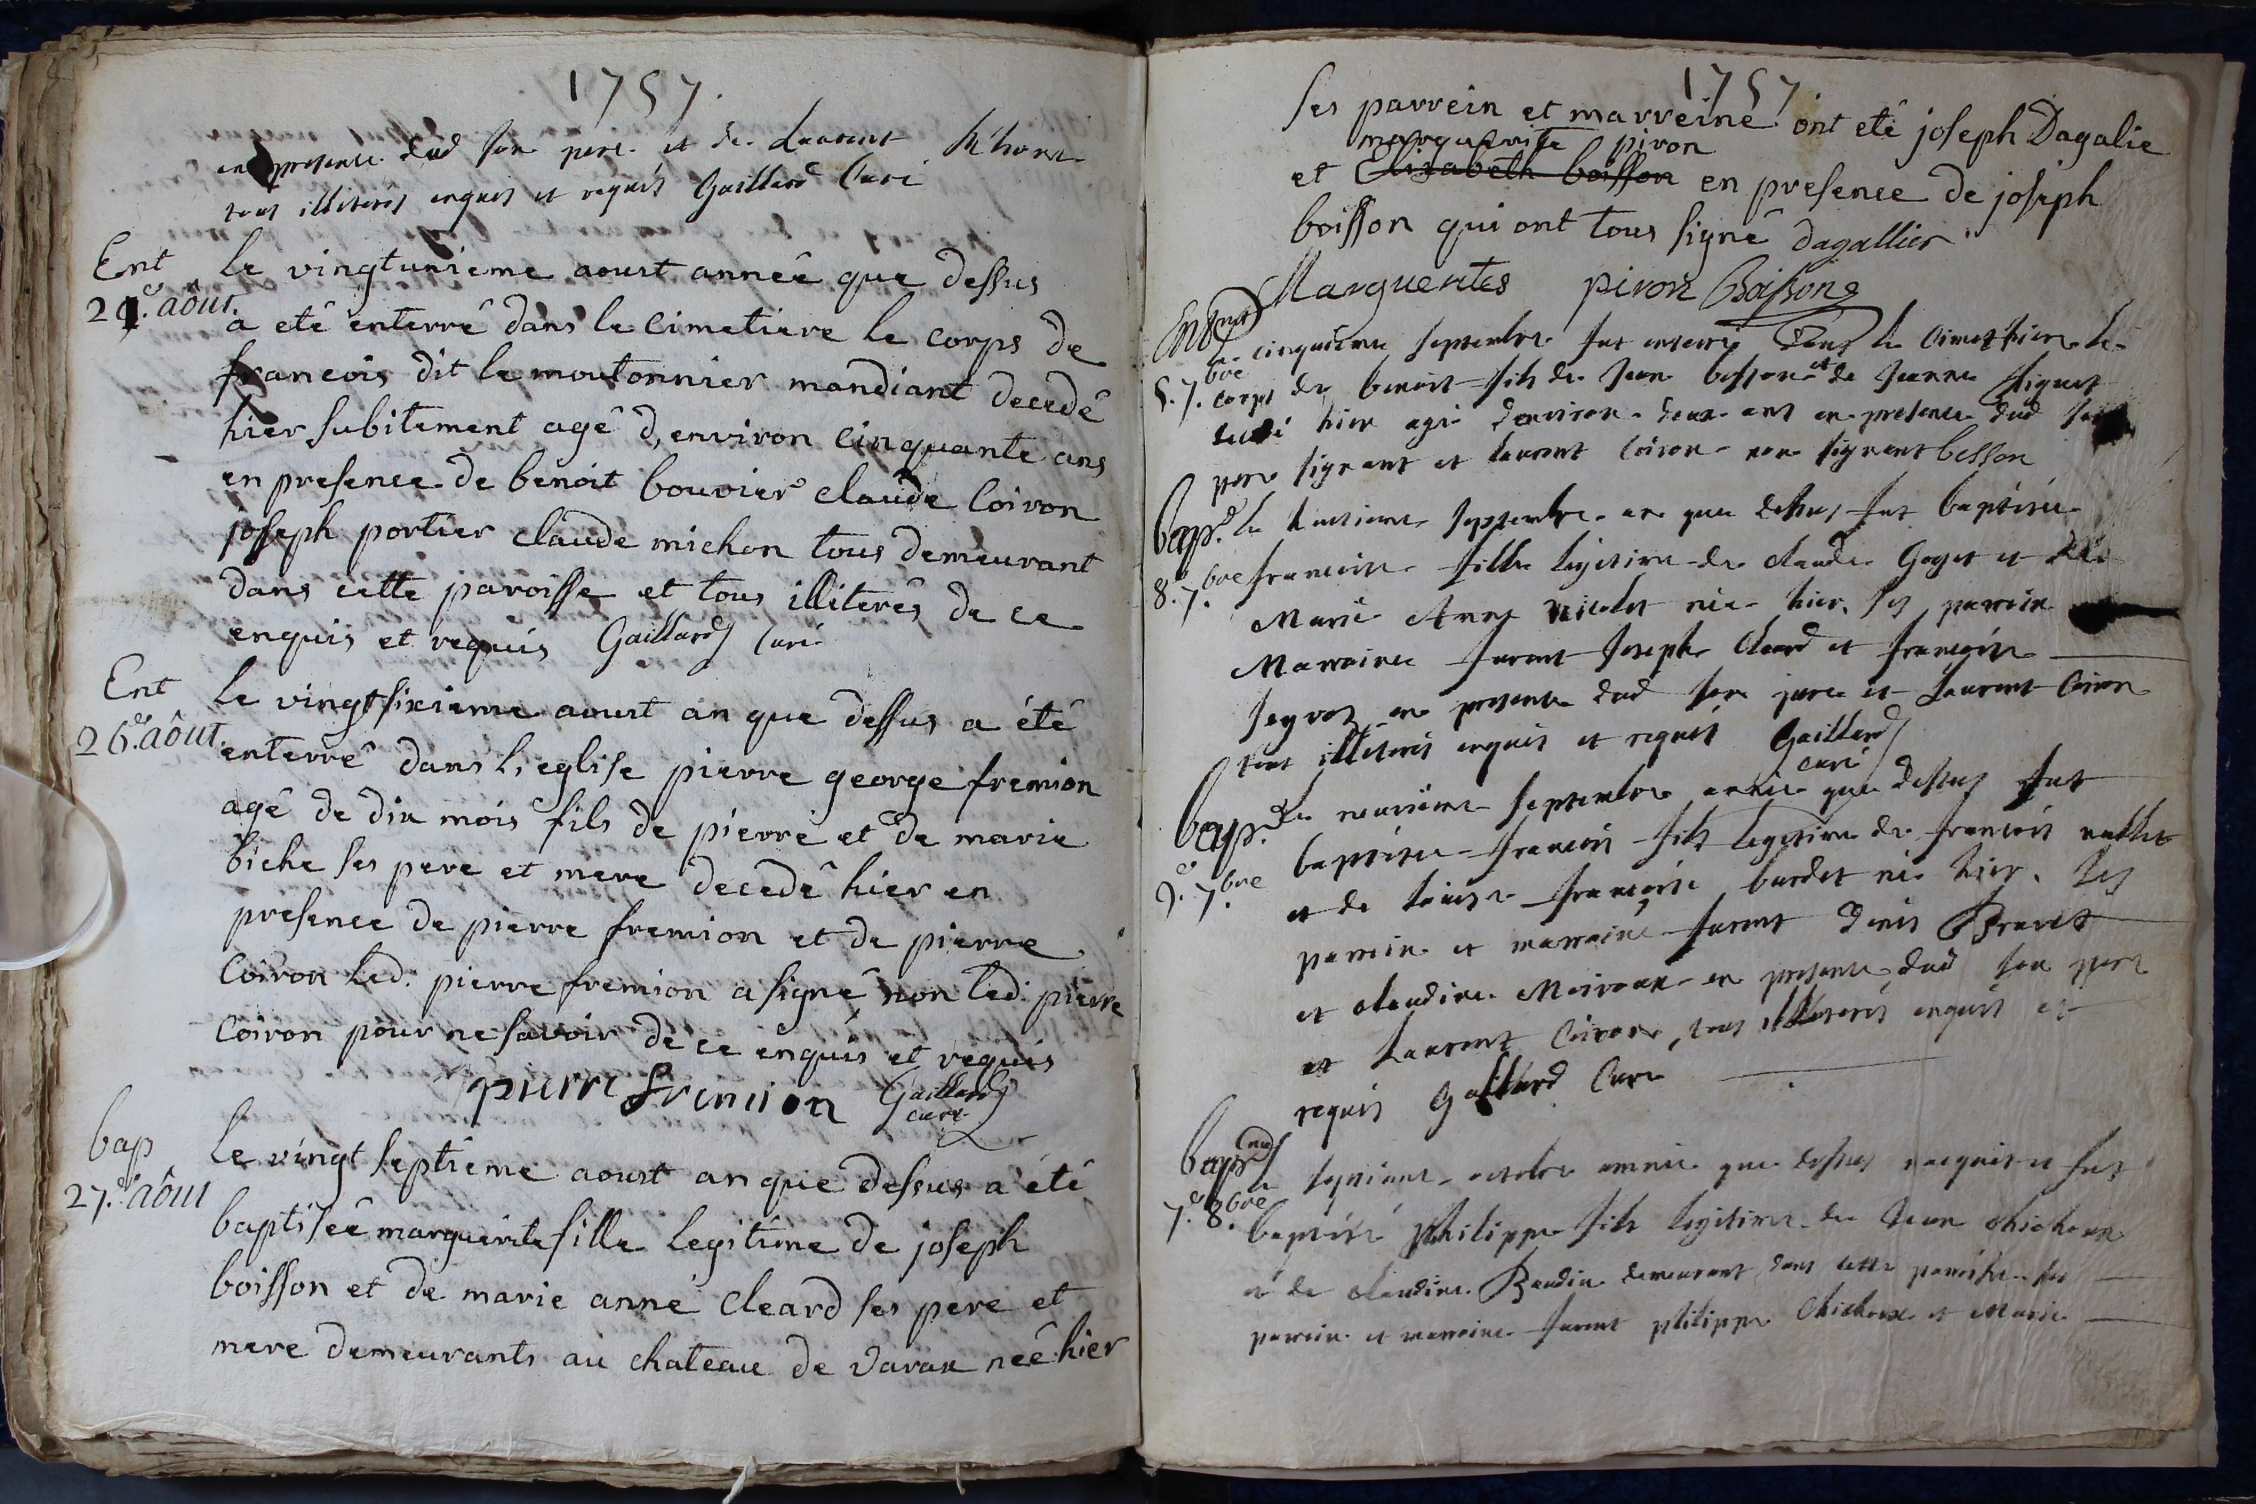 1757.
en presence dud son pere et de Laurent
tous illiterés enquis et requis Gaillard Curé
Ent
21.e août.
le vingtunieme aoust anneê que dessus
a eté enterrê dans le cimetiere le corps de
francois dit le moutonnier mandiant decedê
hier subitement agê d, environ cinquante ans
en presence de benoit bouvier claude Coiron
joseph portier claude michon tous demeurant
dans cette paroisse et tous illiterês de ce
enquis et requis Gaillard Curé
Ent
26.e août.
le vingtsixieme aoust an que dessus a étê
enterrê dans l, eglise pierre george fremion
agê de dix mois fils de pierre et de marie
biche ses pere et mere decedê hier en
presence de pierre fremion et de pierre
Coiron led: pierre fremion a signê non led: pierre
Coiron pour ne savoir de ce enquis et requis
pierre fremion Gaillard
curé
bap
27.e août
le vingt septieme aoust an que dessus a étê
baptiseê marguerite fille legitime de joseph
boisson et de marie anne cleard ses pere et
mere demeurants au chateau de varax neê hier
1757
ses parrein et marreine ont etê joseph Dagalie
marguerite piron
et Elizabeth boisson en presence de joseph
boisson qui ont tous signê dagallier
Marguerites piron Boisson
Ent
5. 7.bre
le cinquieme septembre fut enterré dans le cimethiere le
corps de benoit fils de Jean besson et de Jeanne
decedé hier agé denviron deux ans en presence dud son
pere signant et laurent Coiron non signant besson
bap.
8.e 7.bre
le huitieme septembre an que dessus fut baptisée
francoise fille legitime de claude Goget et de
Marie Anne nicolet née hier. ses parrein
Marraine furent Joseph Cleard et francoise
en presence dud son pere et Laurent Coiron
tous illiterés enquis et requis Gaillard
curé
bap.
9.e 7.bre
le neuvieme septembre année que dessus fut
baptisé francois fils legitime de francois
et de Louise francoise burdet né hier. ses
parrein et marraine furent denis Brevet
et claudine en presence dud son pere
et Laurent Coiron, tous illiterés enquis et
requis Gaillard Curé
bap
7.e 8.bre
le septieme octobre année que dessus nacquit et fut
baptisé philippe fils legitime de Jean
et de claudine Baudin demeurant dans cette paroisse ses
parrein et marraine furent philippe et Marie